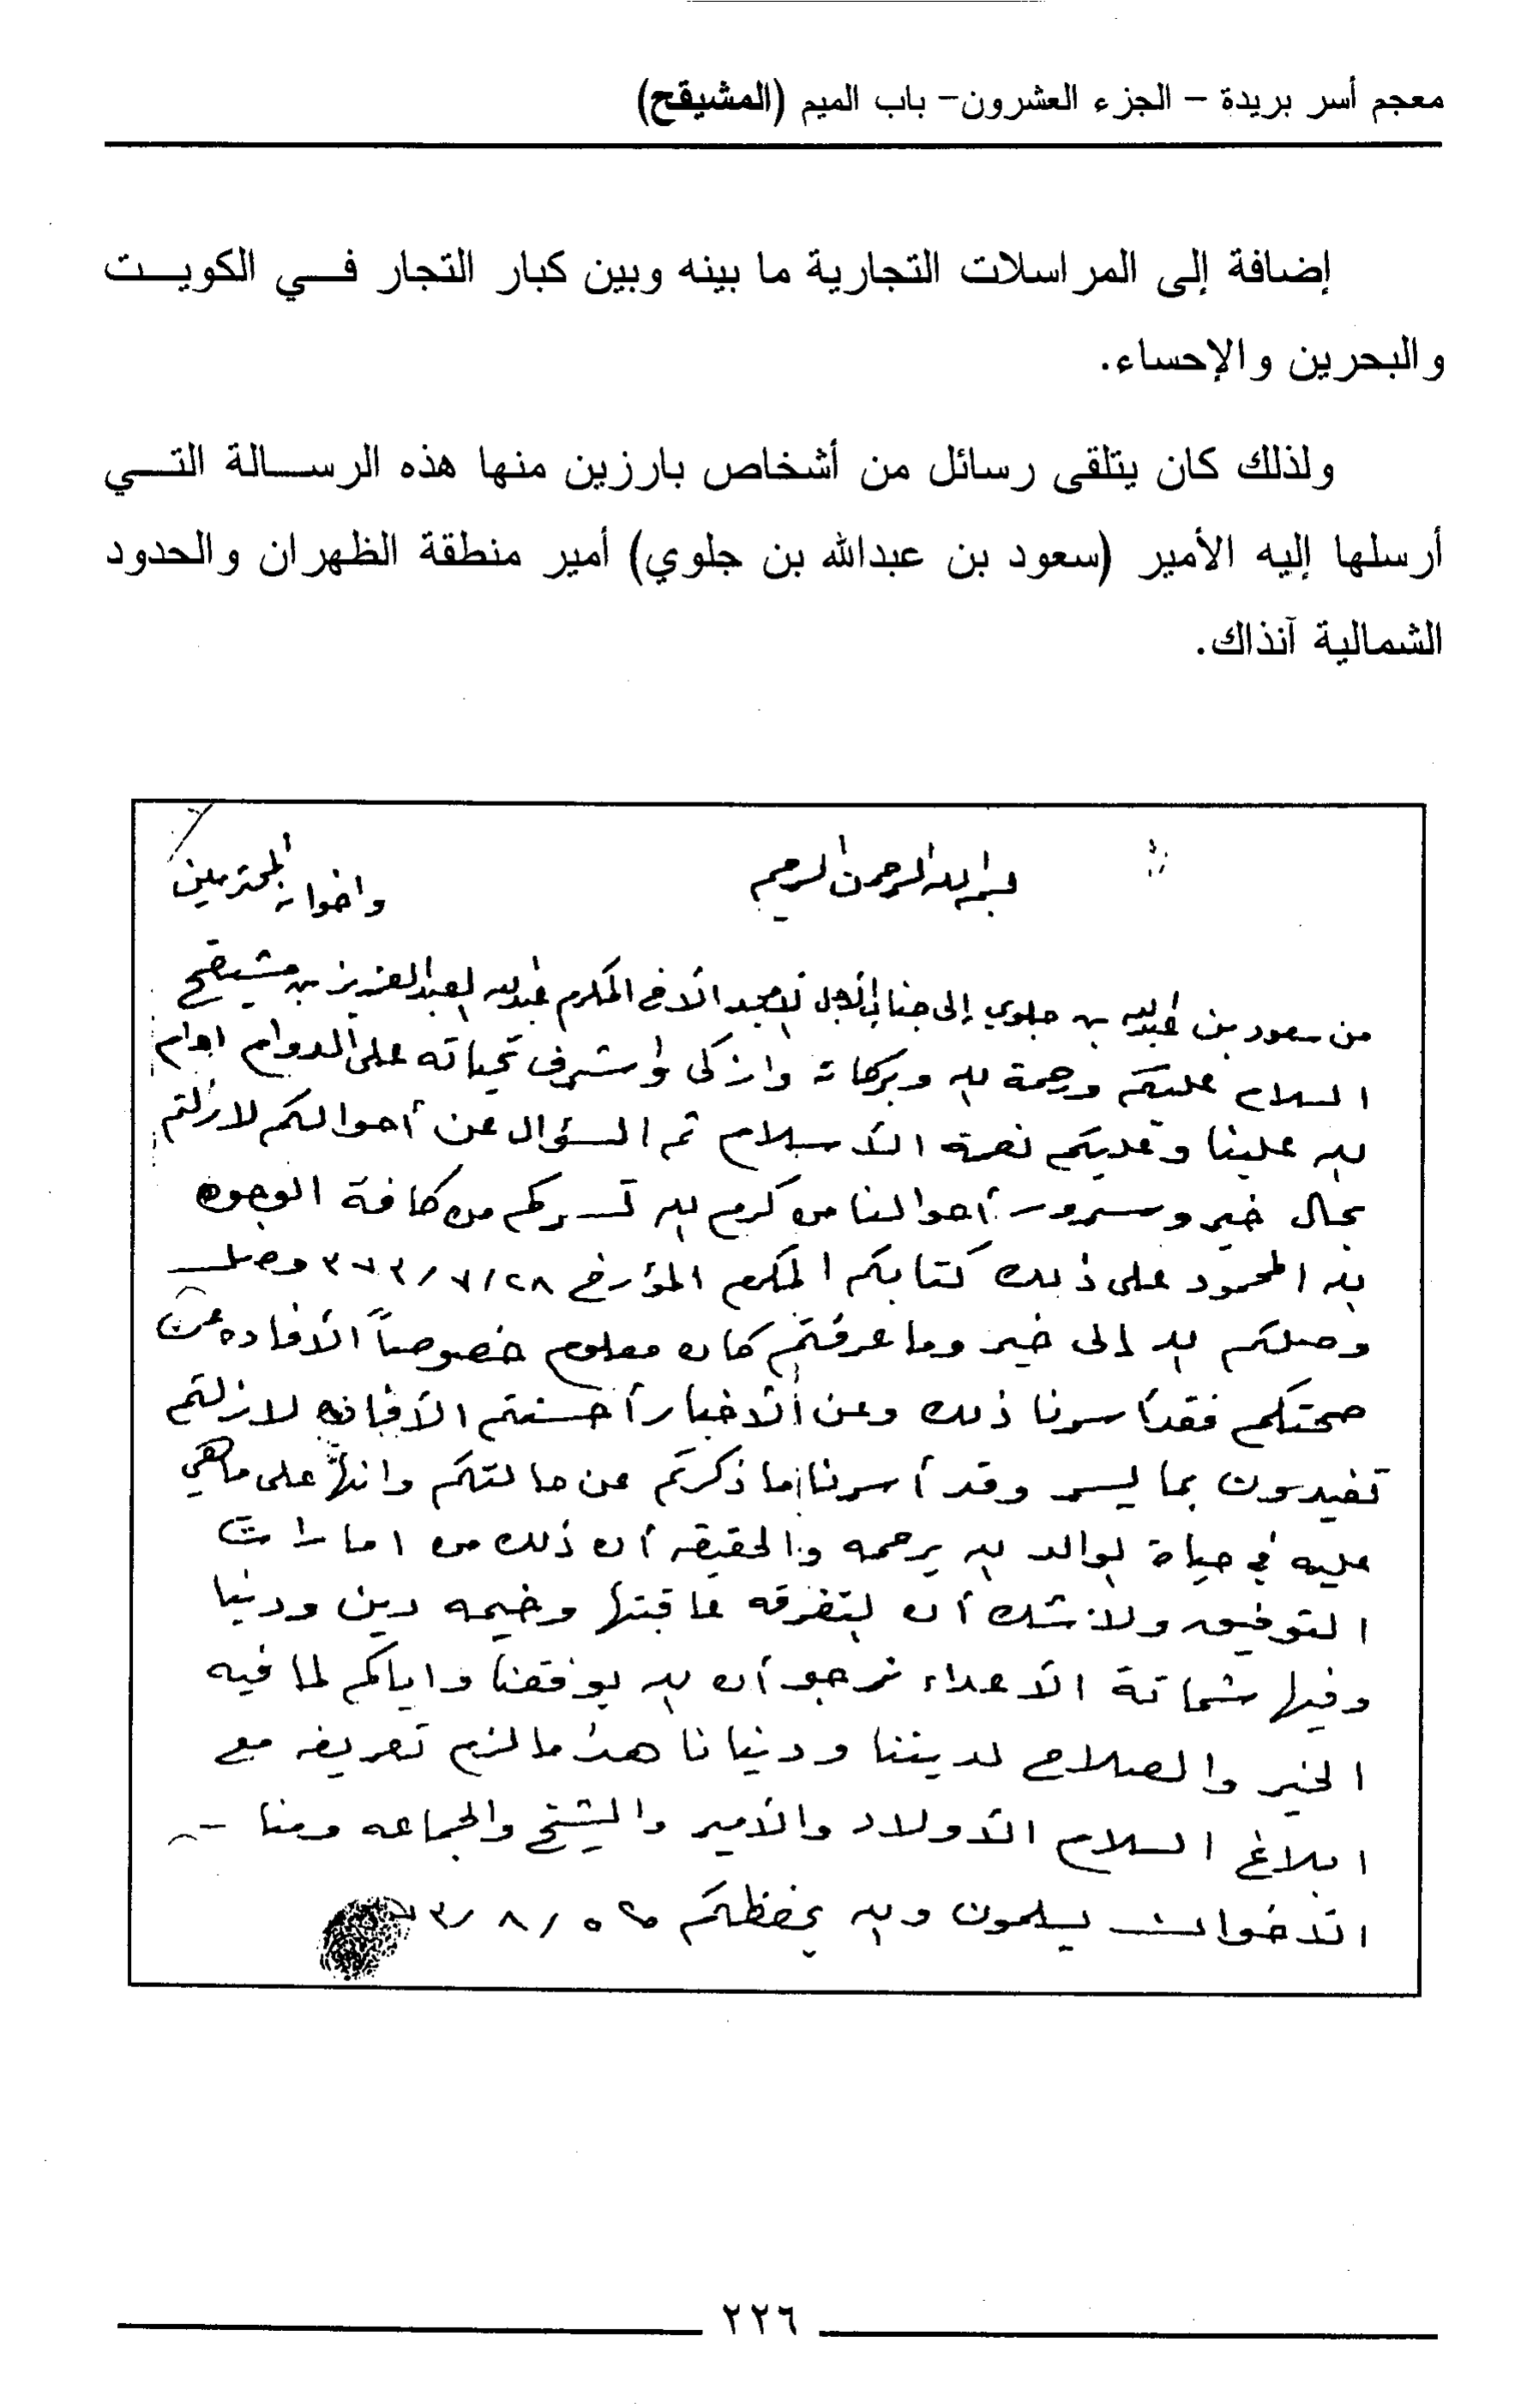 معجم أسر بريدة – الجزء العشرون– باب الميم (المشيقح)
إضافة إلى المراسلات التجارية ما بينه وبين كبار التجار فـي الكويـت
والبحرين والإحساء.
ولذلك كان يتلقى رسائل من أشخاص بارزين منها هذه الرسـالة التـي
أرسلها إليه الأمير (سعود بن عبدالله بن جلوي) أمير منطقة الظهران والحدود
الشمالية آنذاك.
بسم الله الرحمن الرحيم
واخوانه المحترمين
من سعود بن عبدالله بن جلوي إلى جناب الأجل الأمجد الأفخم المكرم عبدالله العبدالعزيز بن مشيقح
السلام عليكم ورحمة الله وبركاته وازكى واشرف تحياته على الدوام ادام
الله علينا وعليكم نعمة الأسلام ثم السؤال عن أحوالكم لازلتم
بحال خير وسرور أحوالنا من كرم الله تسركم من كافة الوجوه
لله المحمود على ذلك كتابكم المكرم المؤرخ ٢٨/٧/٣٧٣ وصل
وصلكم الله إلى خير وما عرفتم كان معلوم خصوصاً الأفاده عن
صحتكم فقد أسرنا ذلك وعن الأخبار أحسنتم الأفاده لازلتم
تفيدون بما يسر وقد أسرنا ما ذكرتم عن حالتكم وانها على ماهي
عليه في حياة الوالد الله يرحمه والحقيقه أن ذلك من امارات
التوفيق ولاشك أن التفرقه عاقبتها وخيمه دين ودنيا
وفيها شماتة الأعداء نرجو أن الله يوفقنا واياكم لما فيه
الخير والصلاح لديننا ودنيانا هذا ما لزم تعريفه مع
ابلاغ السلام الأولاد والأمير والشيخ والجماعه ومنا
الأخوان يسلمون والله يحفظكم ٥/٨/٣٧٣
٢٢٦